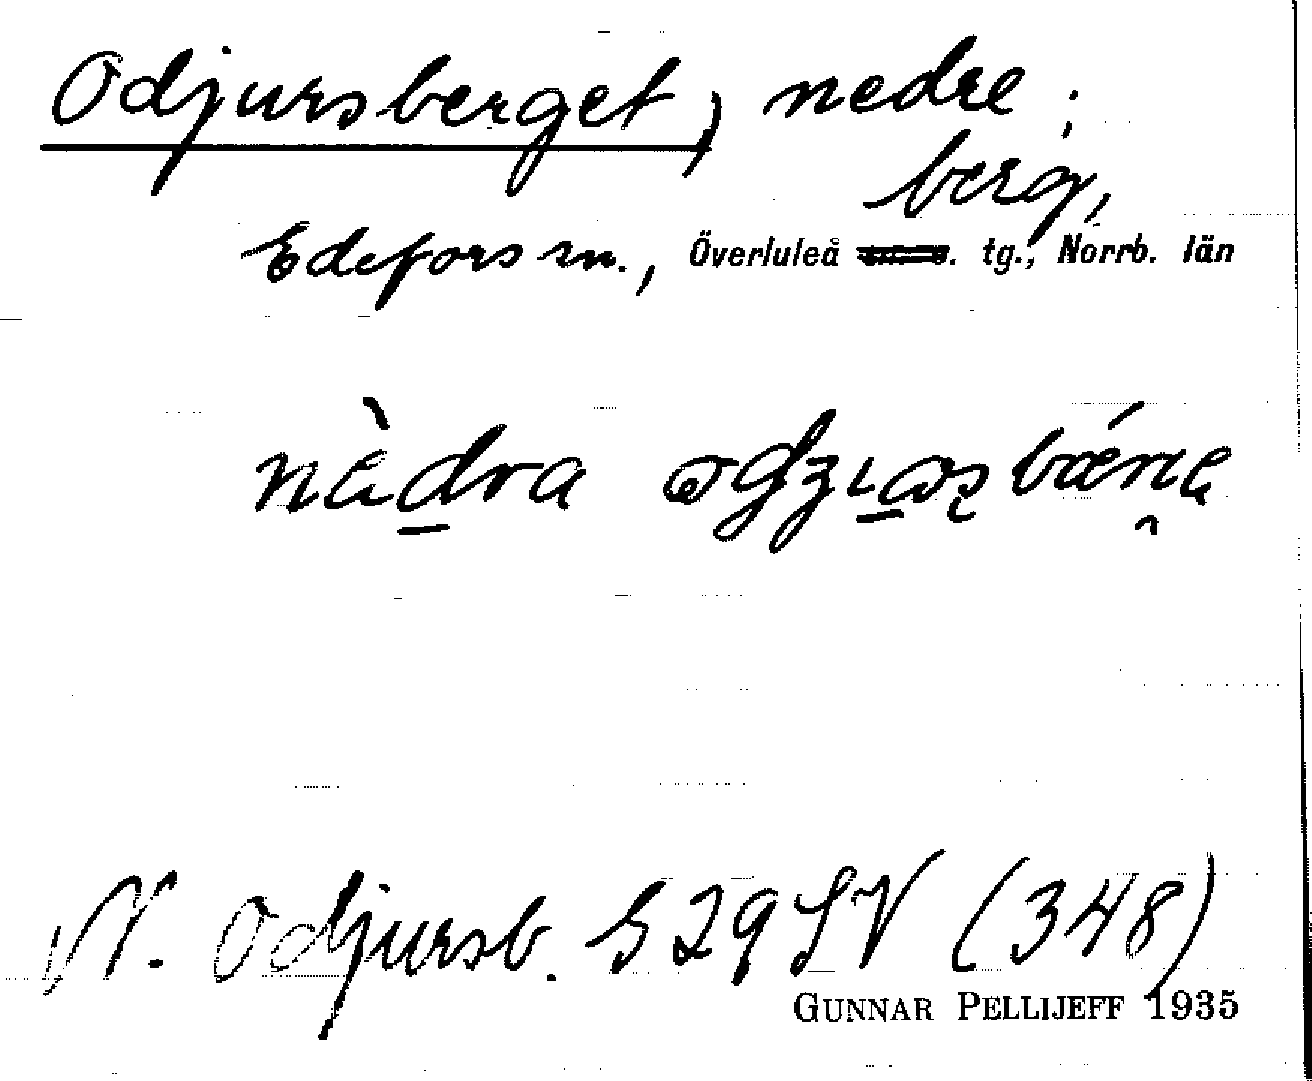 Odjursberget, nedre;
berg,
Edefors sn., Överluleå tg., Norrb. län
N. Odjursb. S 29 SV (348)
GUNNAR PELLIJEFF 1935